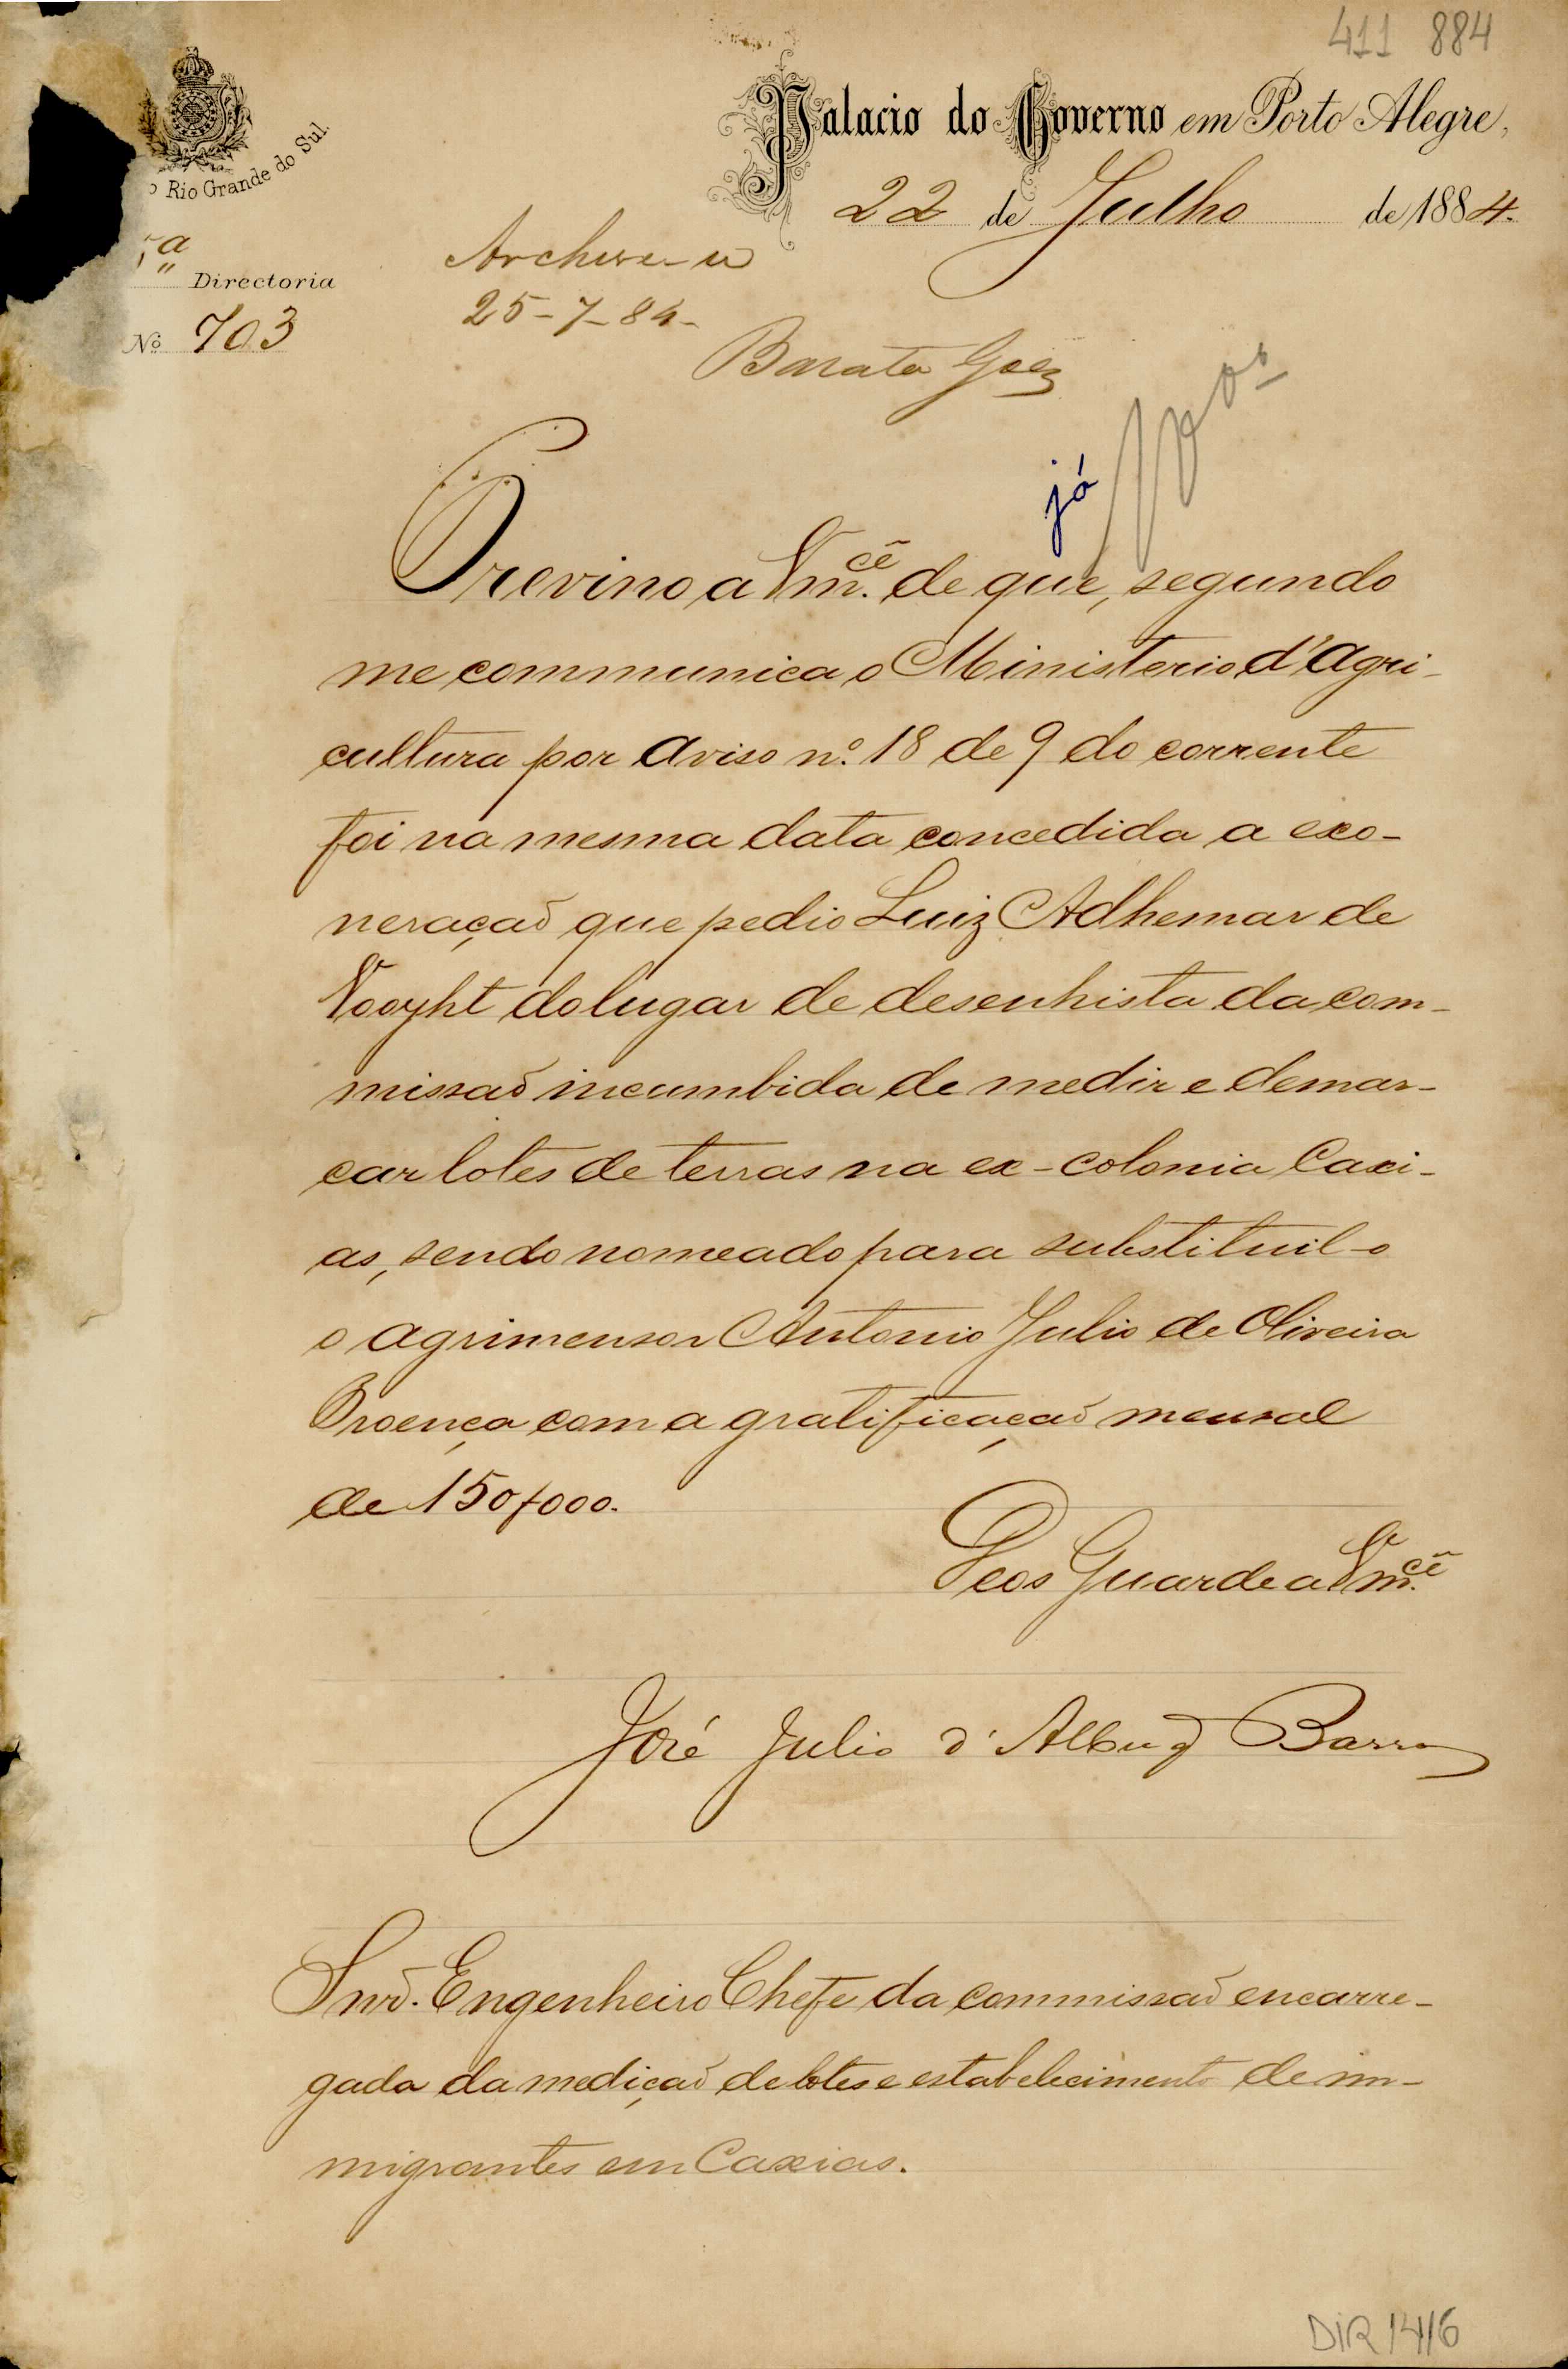 411 884
Palacio do Governo em Porto Alegre,
22 de Julho de 1884.
Rio Grande do Sul.
ª Directoria
Nº 703
Archive-se
25-7-84-
Barata Goes
já
Previno a Vm.cê de que, segundo
me communica o Ministerio d'Agri-
cultura por Aviso nº 18 de 9 do corrente
foi na mesma data concedida a exo-
neração que pedio Luiz Adhemar de
Vooyht do lugar de desenhista da com-
missão incumbida de medir e demar-
car lotes de terras na ex-colonia Caxi-
as, sendo nomeado para substituil-o
o agrimensor Antonio Julio de Oliveira
Proença com a gratificação mensal
de 150$000.
Deos Guarde a Vm.cê
José Julio d'Albuq Barros
Snr. Engenheiro Chefe da commissão encarre-
gada da medição de lotes e estabelecimento de im-
migrantes em Caxias.
DIR 1416